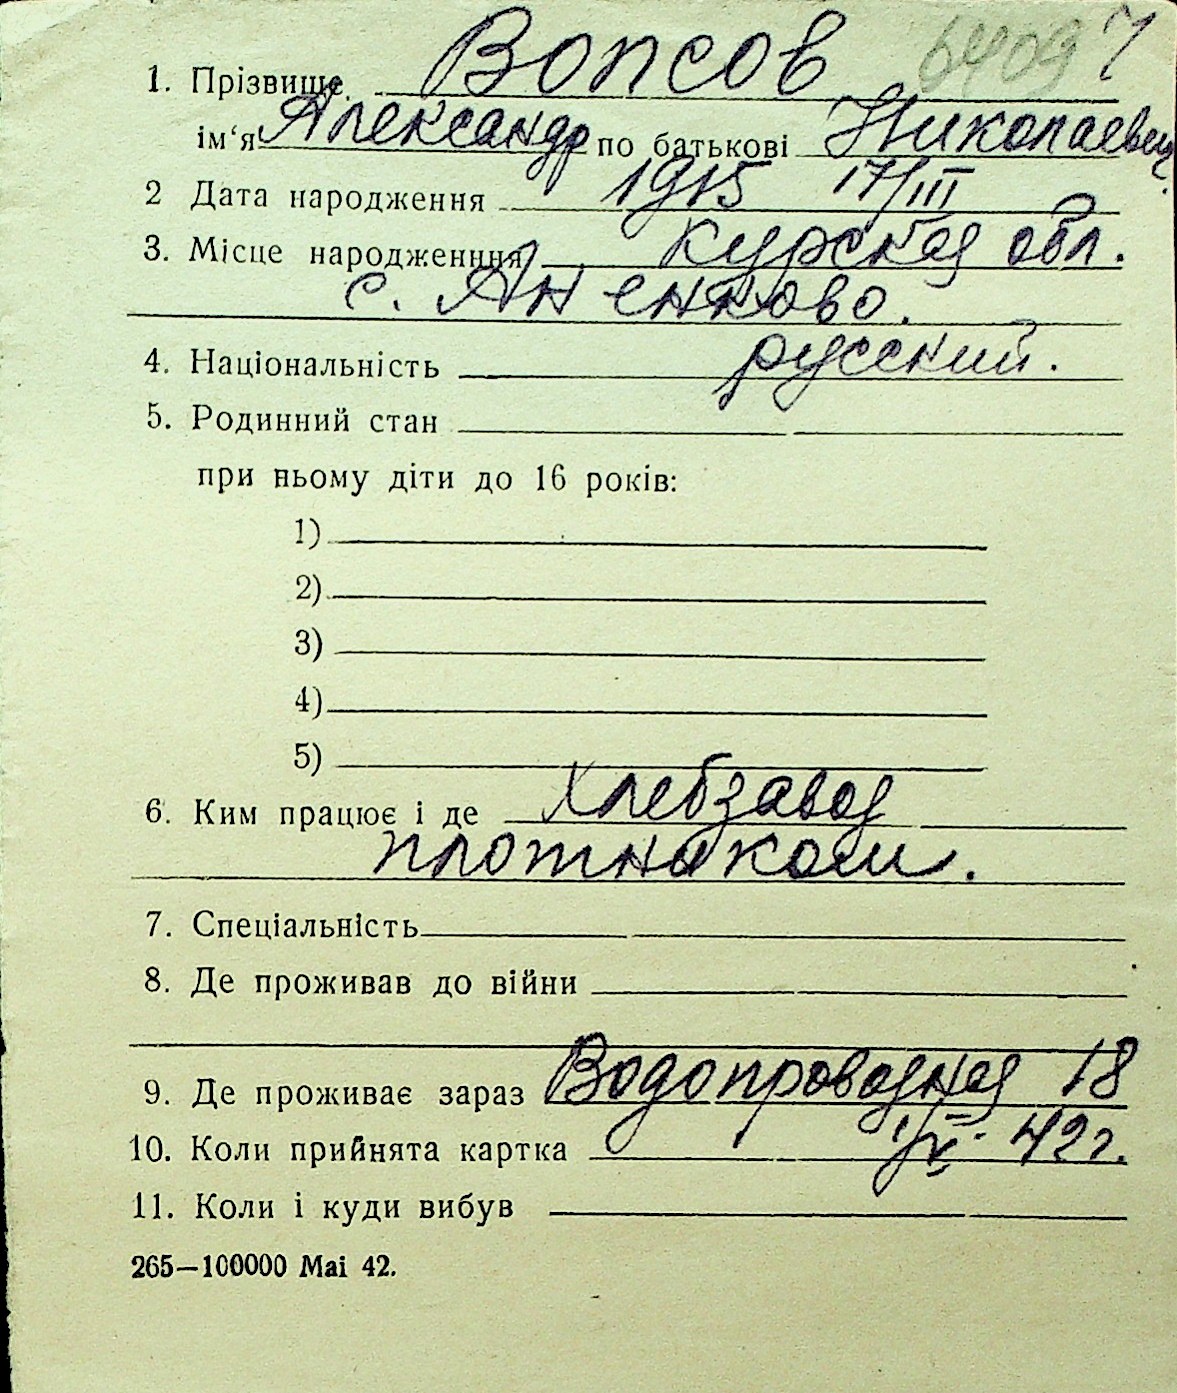 6409 7
1. Прізвище Вопсов
ім‘я Александр по батькові Николаевич
2 Дата народження 1915 17/III
3. Місце народженння Курская обл.
с. Аненково.
4. Національність русский.
5. Родинний стан
при ньому діти до 16 років:
1)
2)
3)
4)
5)
6. Ким працює і де Хлебзавод
плотником.
7. Спеціальність
8. Де проживав до війни
9. Де проживає зараз Водопроводная 18
10. Коли прийнята картка 42г.
11. Коли і куди вибув
265—100000 Mai 42.